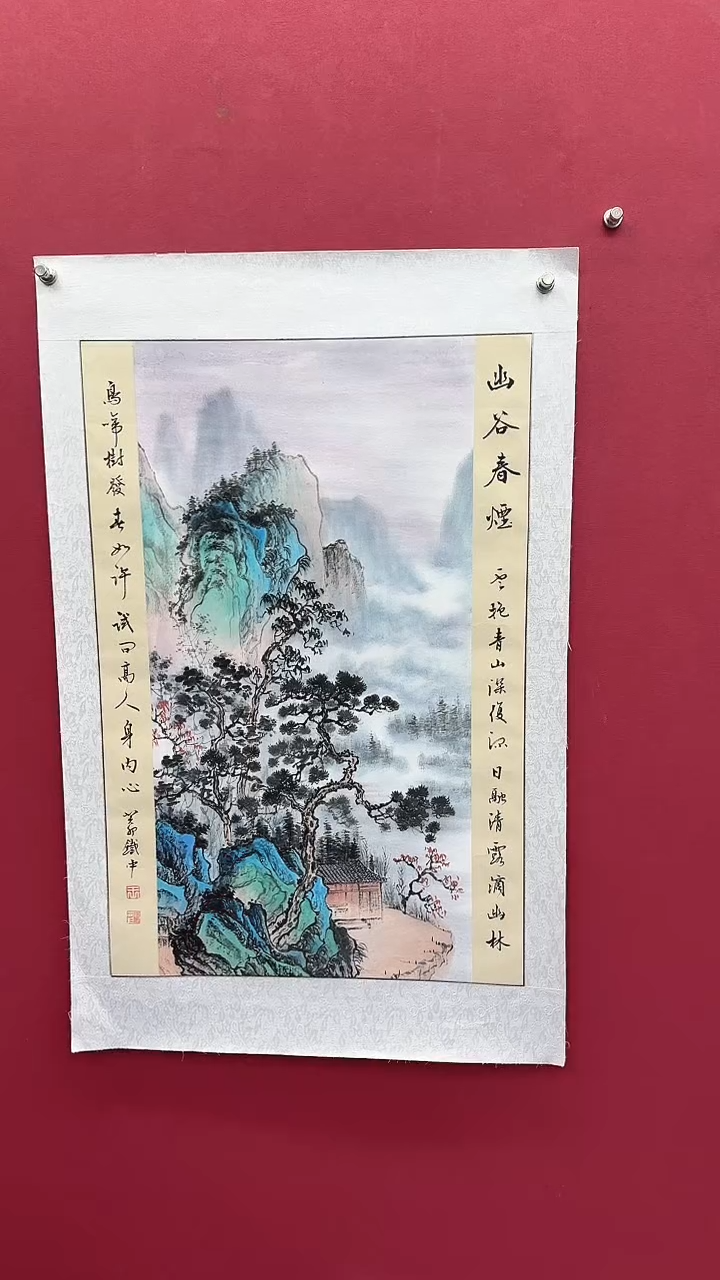 幽谷春煙
雲抱青山深復深 日融清露滴幽林
鳥啼樹發春如許 試問高人身内心
癸卯鐵中